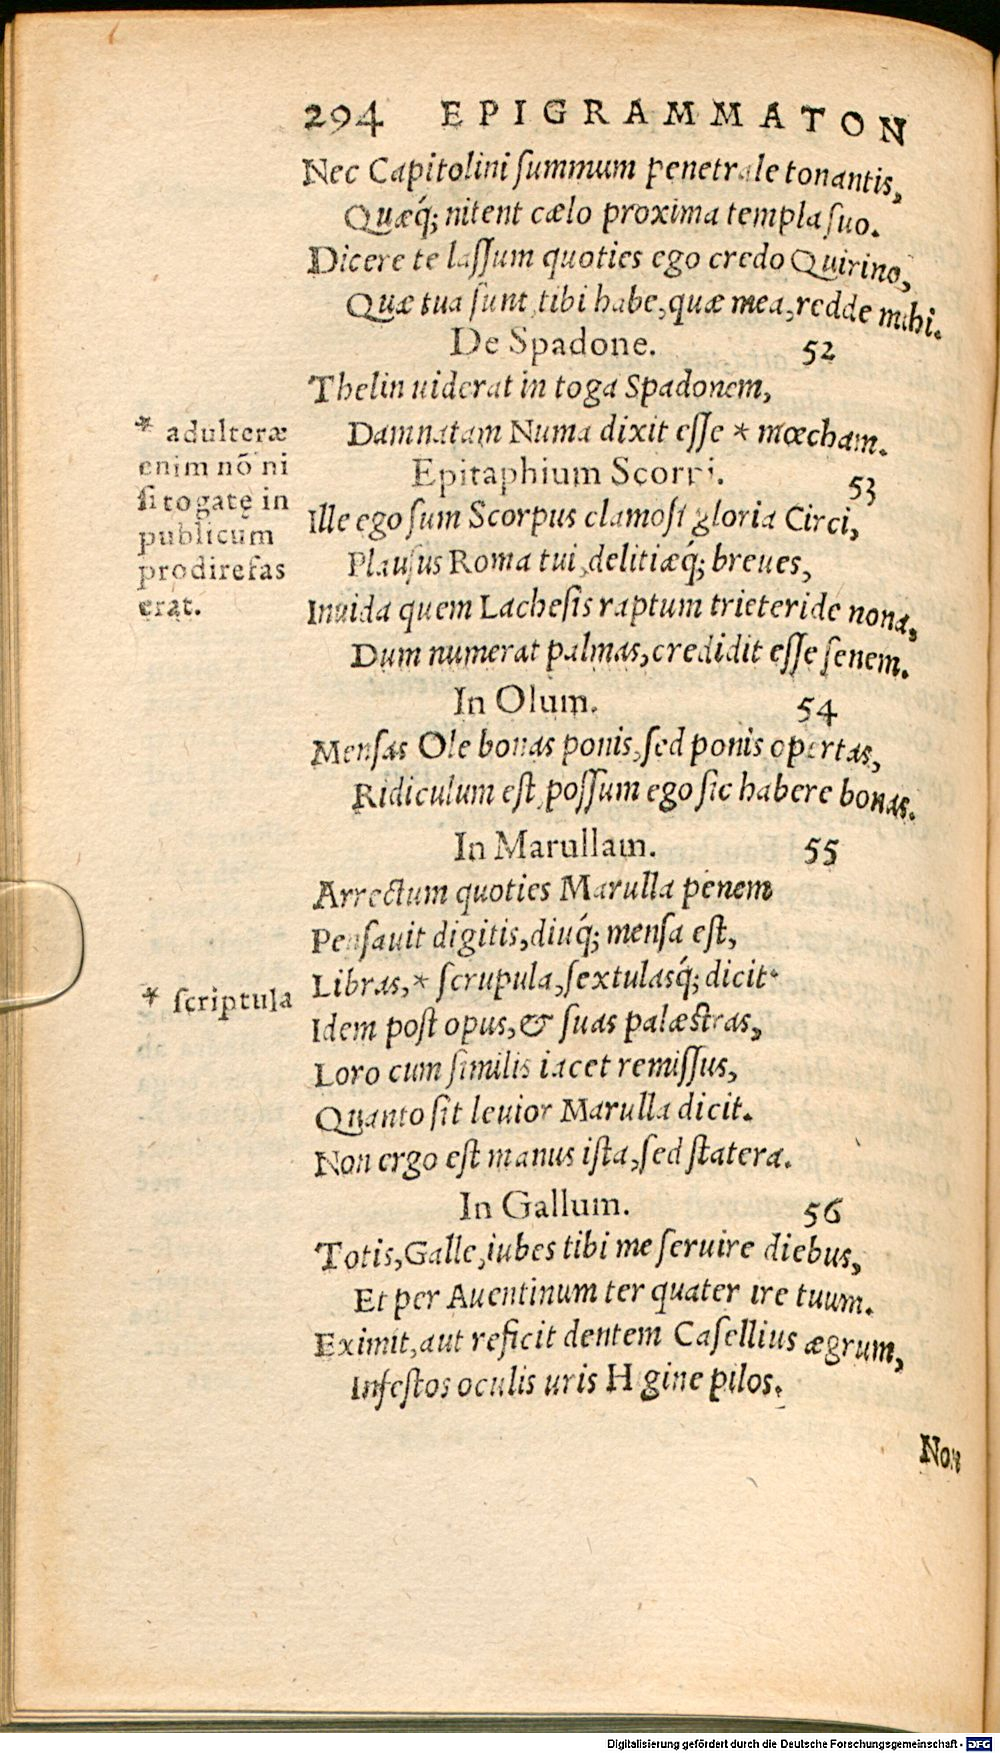 294 EPIGRAMMATON
Nec Capitolini ſummum penetrale tonantis,
Quæq́; nitent cælo proxima templa ſuo.
Dicere te laſſum quoties ego credo Quirino,
Quæ tua ſunt, tibi habe, quæ mea, redde mihi.
De Spadone. 52
Thelin uiderat in toga Spadonem,
Damnatam Numa dixit eſſe * mœcham.
Epitaphium Scorpi. 53
Ille ego ſum Scorpus clamoſi gloria Circi,
Plauſus Roma tui, delitiæq́; breues,
Inuida quem Lacheſis raptum trieteride nona,
Dum numerat palmas, credidit eſſe ſenem.
In Olum. 54
Menſas Ole bonas ponis, ſed ponis opertas,
Ridiculum eſt, poſſum ego ſic habere bonas.
In Marullam. 55
Arrectum quoties Marulla penem
Penſauit digitis, diuq́; menſa eſt,
Libras, * ſcrupula, ſextulasq́; dicit.
Idem poſt opus, & ſuas palæſtras,
Loro cum ſimilis iacet remiſſus,
Quanto ſit leuior Marulla dicit.
Non ergo eſt manus iſta, ſed ſtatera.
In Gallum. 56
Totis, Galle, iubes tibi me ſeruire diebus,
Et per Auentinum ter quater ire tuum.
Eximit, aut reficit dentem Caſellius ægrum,
Infeſtos oculis uris H gine pilos.
Non
* adulteræ
enim nõ ni
ſi togatę in
publicum
prodire fas
erat.
* ſcriptula
Digitalisierung gefördert durch die Deutsche Forschungsgemeinschaft - DFG